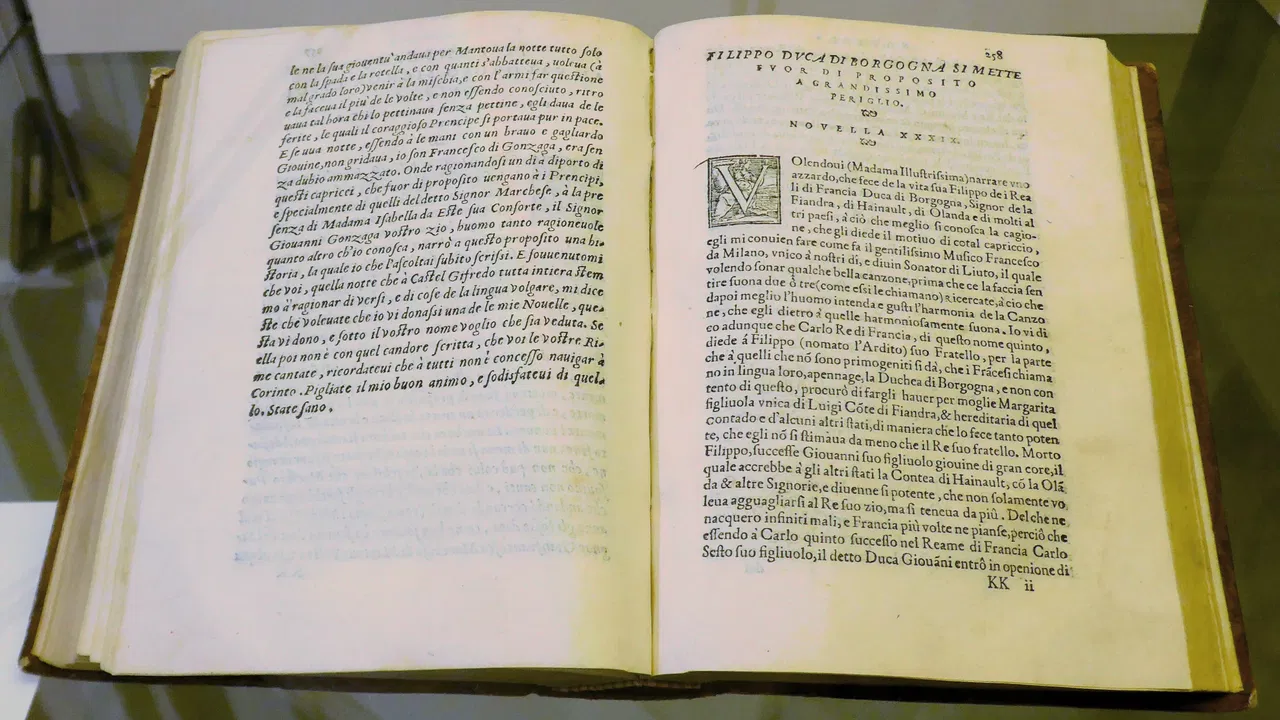 le ne la sua giouentu' andaua per Mantoua la notte tutto solo
con la spada e la rotella, e con quanti s'abbatteua, uolrua (à
mal grado loro) venir à la mischia, e con l'armi far questione
e la faceua il piu' de le volte, e non essendo conosciuto, ritro
uaua tal hora chi lo pettinaua senza pettine, egli daua de le
ferite, le quali il coraggioso Prencipe si portaua pur in pace.
E se uua notte, essendo à le mani con un brauo e gagliardo
Giouine, non gridaua, io son Francesco di Gonzaga, era sen
za dubio ammazzato. Onde ragionandosi un dì a diporto di
questi capricci, che fuor di proposito uengano à i Prencipi,
e specialmente di quelli del detto Signor Marchese, à la pre
senza di Madama Isabella da Este sua Consorte, il Signor
Giouanni Gonzaga vostro zio, huomo tanto ragioneuole
quanto altro ch'io conosca, narrò a questo proposito una hi-
storia, la quale io che l'ascoltai subito scrissi. E souuenutomi
che voi, quella notte che à Castel Gifredo tutta intiera stem
mo à ragionar di versi, e di cose de la lingua volgare, mi dice
ste che voleuate che io vi donassi una de le mie Nouelle, que-
sta vi dono, e sotto il vostro nome voglio che sia veduta. Se
ella poi non è con quel candore scritta, che voi le vostre Ri-
me cantate, ricordateui che à tutti non è concesso nauigar à
Corinto. Pigliate il mio buon animo, e sodisfateui di quel-
lo. State sano.
258
FILIPPO DVCA DI BORGOGNA SI METTE
FVOR DI PROPOSITO
A GRANDISSIMO
PERIGLIO.
NOVELLA XXXIX.
VOlendoui (Madama Illustrissima) narrare vno
azzardo, che fece de la vita sua Filippo de i Rea
li di Francia Duca di Borgogna, Signor de la
Fiandra, di Hainault, di Olanda e di molti al
tri paesi, à ciò che meglio si conosca la cagio-
ne, che gli diede il motiuo di cotal capriccio,
egli mi conuien fare come fa il gentilissimo Musico Francesco
da Milano, vnico à nostri dì, e diuin Sonator di Liuto, il quale
volendo sonar qualche bella canzone, prima che ce la faccia sen
tire suona due ò tre (come essi le chiamano) Ricercate, à ciò che
dapoi meglio l'huomo intenda e gusti l'harmonia de la Canzo
ne, che egli dietro à quelle harmoniosamente suona. Io vi di
co adunque che Carlo Re di Francia, di questo nome quinto,
diede à Filippo (nomato l'Ardito) suo Fratello, per la parte
che à quelli che nõ sono primogeniti si dà, che i Frãcesi chiama
no in lingua loro, apennage, la Duchea di Borgogna, e non con
tento di questo, procurò di fargli hauer per moglie Margarita
figliuola vnica di Luigi Cõte di Fiandra, & hereditaria di quel
contado e d'alcuni altri stati, di maniera che lo fece tanto poten
te, che egli nõ si stimaua da meno che il Re suo fratello. Morto
Filippo, successe Giouanni suo figliuolo giouine di gran core, il
quale accrebbe à gli altri stati la Contea di Hainault, cõ la Olã
da & altre Signorie, e diuenne si potente, che non solamente vo
leua agguagliarsi al Re suo zio, ma si teneua da più. Del che ne
nacquero infiniti mali, e Francia più volte ne pianse, perciò che
essendo à Carlo quinto successo nel Reame di Francia Carlo
Sesto suo figliuolo, il detto Duca Giouãni entrò in openione di
KK ii